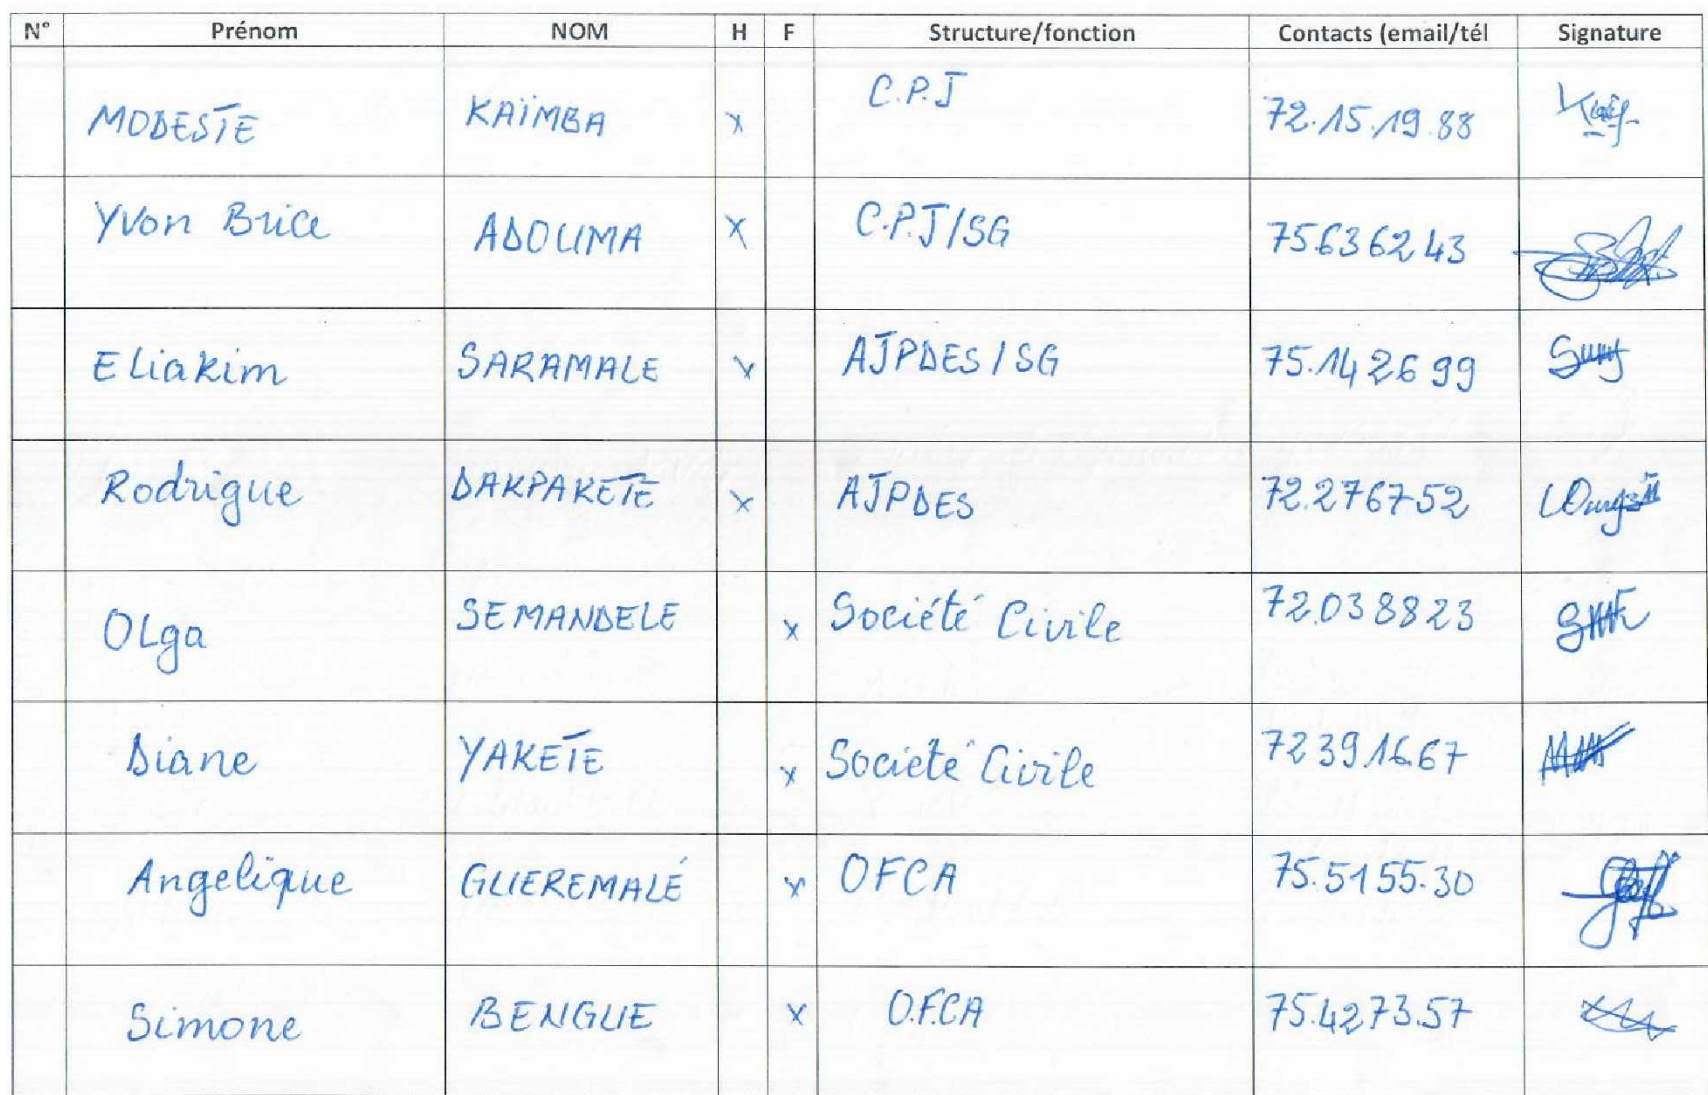 N° Prénom NOM H F Structure/fonction Contacts (email/tél Signature
MODESTE KAÏMBA x C.P.J 72.15.19.88
Yvon Brice ADOUMA x C.P.J/SG 75636243
Eliakim SARAMALE x AJPDES/SG 75.142699
Rodrigue DAKPAKETE x AJPDES 72.276752
OLga SEMANDELE x Société Civile 72.038823
Diane YAKETE x Societé Civile 72391667
Angelique GUEREMALÉ x OFCA 75.5155.30
Simone BENGUE x O.F.CA 75.4273.57